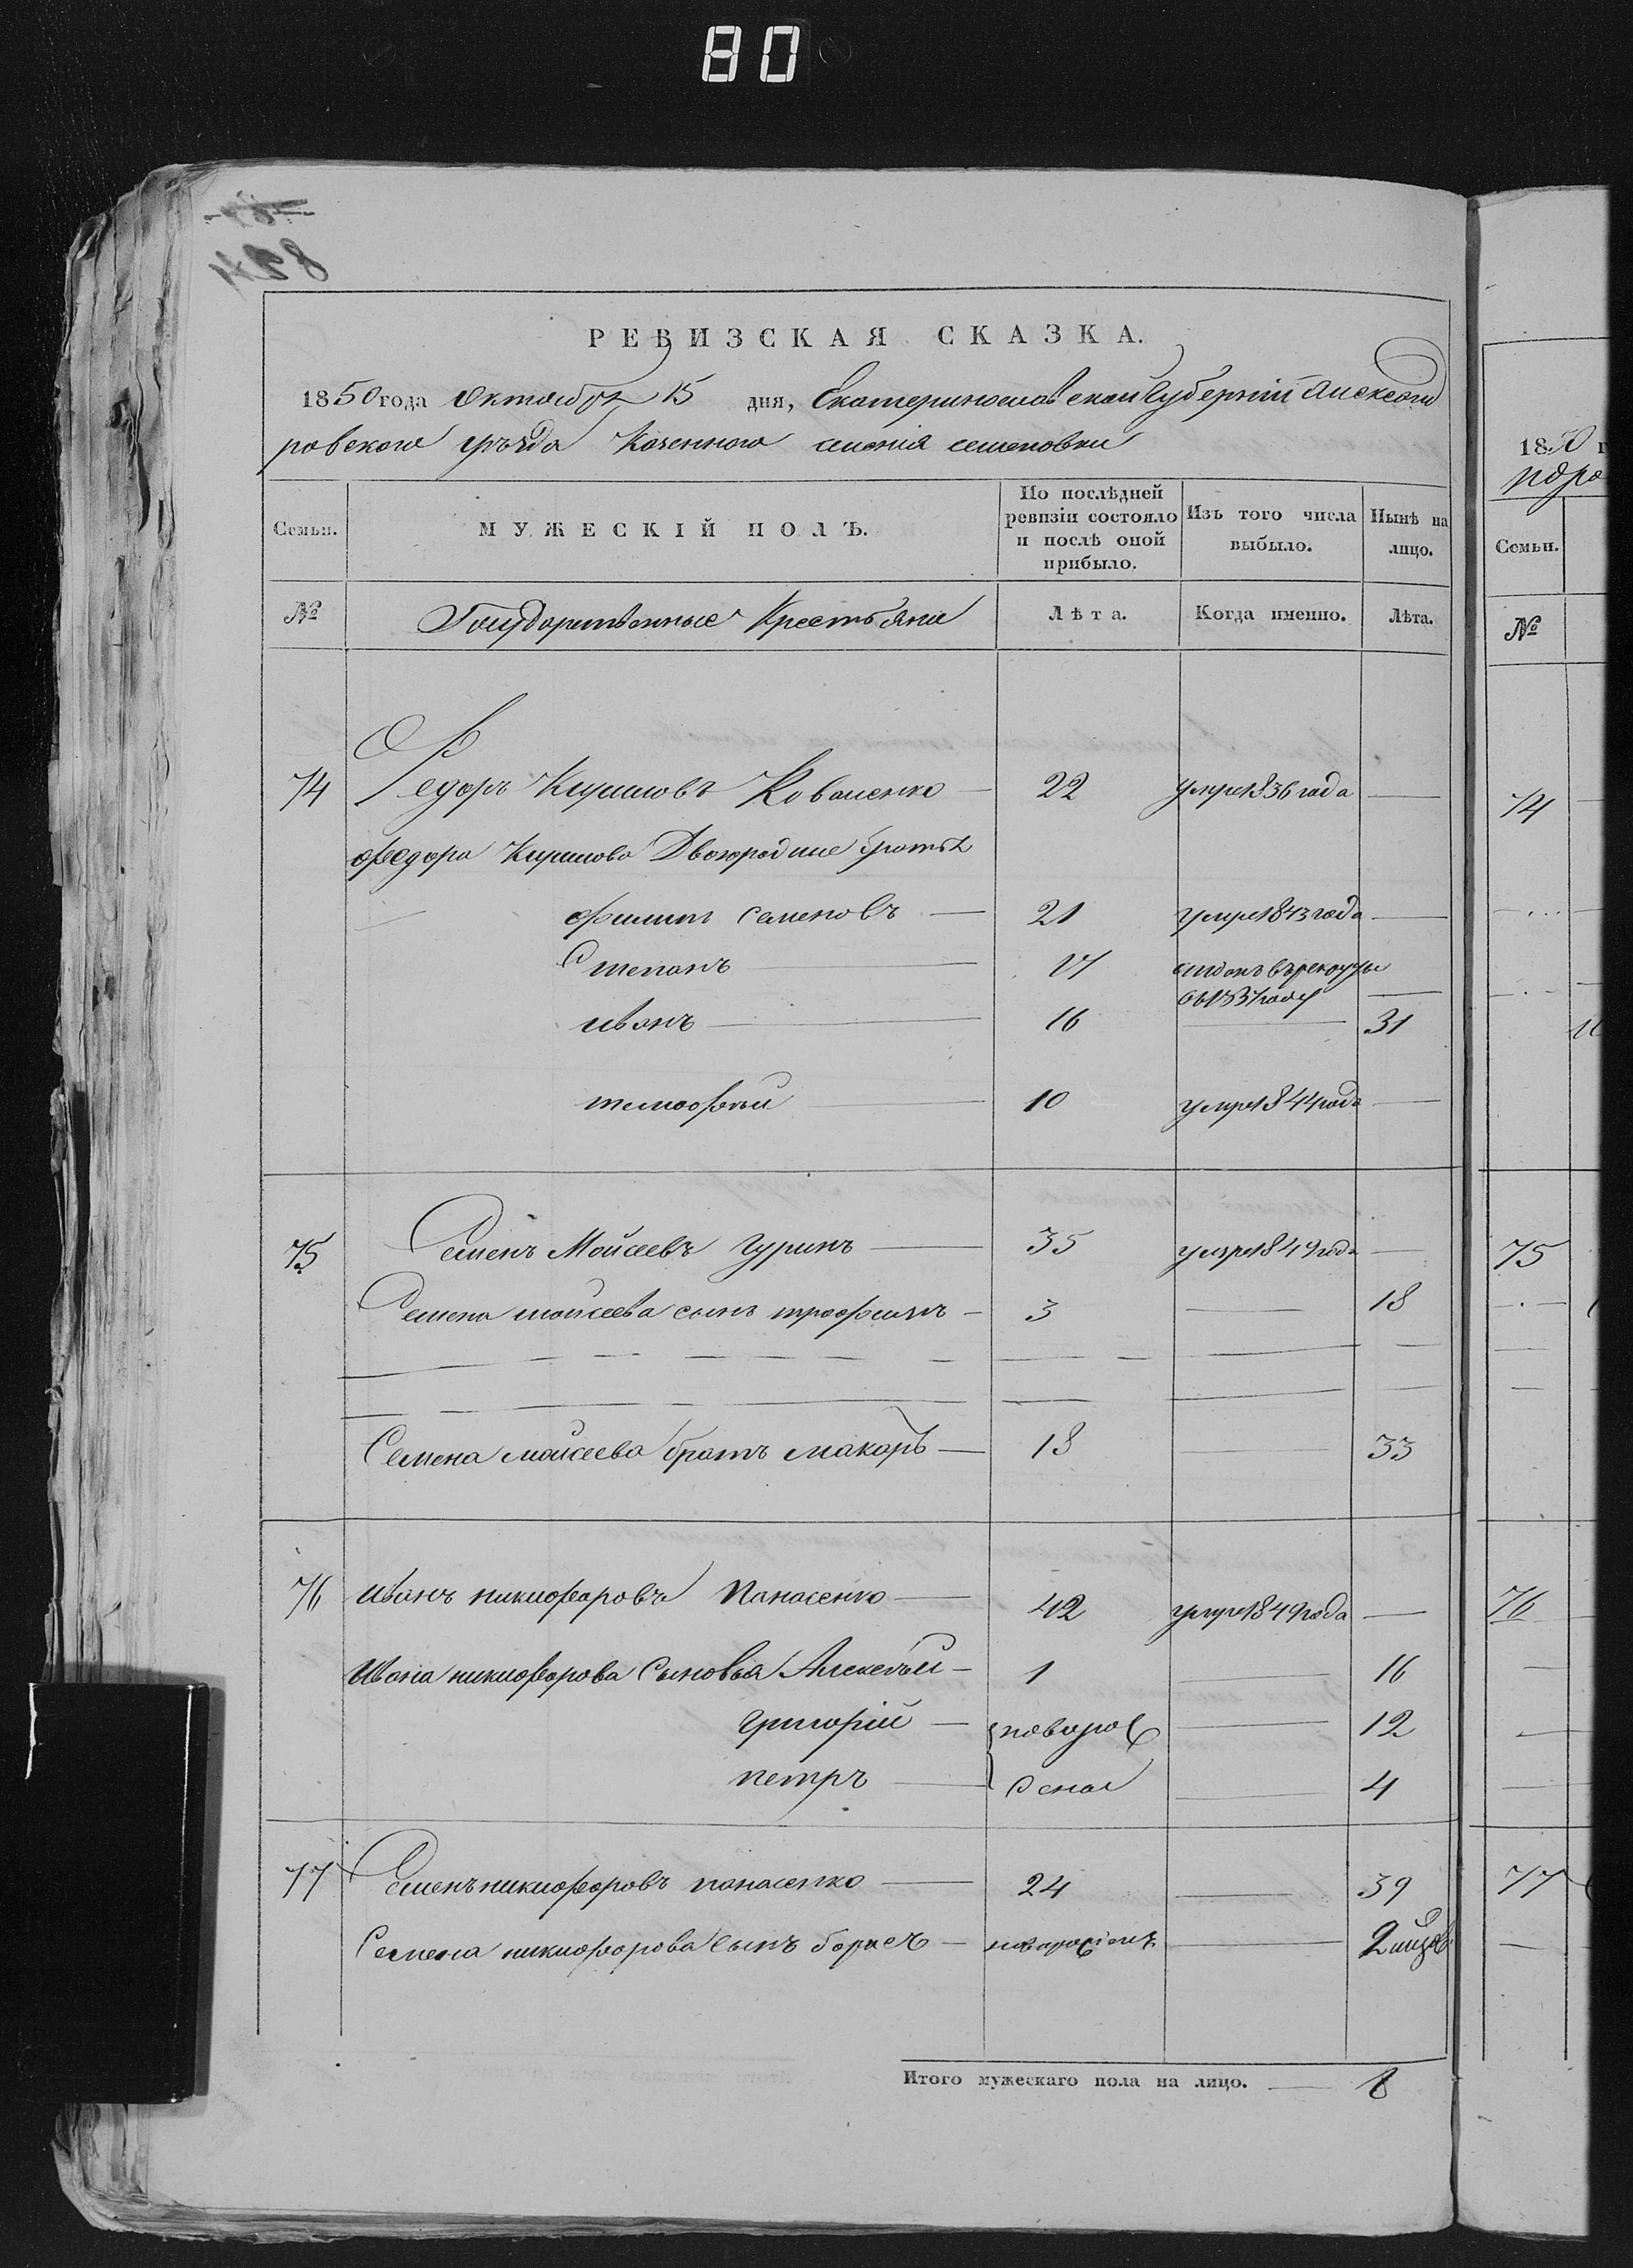 80
824
РЕВИЗСКАЯ СКАЗКА.
1850 года Октября 15 дня, Екатеринославской Губерніи Александ
ровского уѣзда Казенного селенія семеновки
Семьи. МУЖЕСКІЙ ПОЛЪ. По послѣдней ревизіи состояло и послѣ оной прибыло. Изъ того числа выбыло. Нынѣ на лицо.
№ Государственные Крестьяне Лѣта. Когда именно. Лѣта.
74 Федоръ Кириловъ Коваленко — 22 умре 1836 года —
Федора Кирилова Двоюродные братья
филипъ Семеновъ — 21 умре 1843 года —
Степанъ — 17 отданъ въ рекруты
въ 1837 году —
иванъ — 16 — 31
тимофѣй — 10 умре 1844 года —
75 Семенъ Мойсеевъ Гуринъ — 35 умре 1849 года —
Семена мойсеева сынъ трофимъ — 3 — 18
Семена мойсеева братъ макаръ — 18 — 33
76 Иванъ никифоровъ Панасенко — 42 умре 1849 года —
Ивана никифорова Сыновья Алексѣй — 1 — 16
григорій — новорож — 12
петръ — дена — 4
77 Семенъ никифоровъ панасенко — 24 — 39
Семена никифорова сынъ борисъ — новорожденъ — 2
Итого мужескаго пола на лицо. — 8
1850 г
ндро
Семьи.
№
74
75
76
77